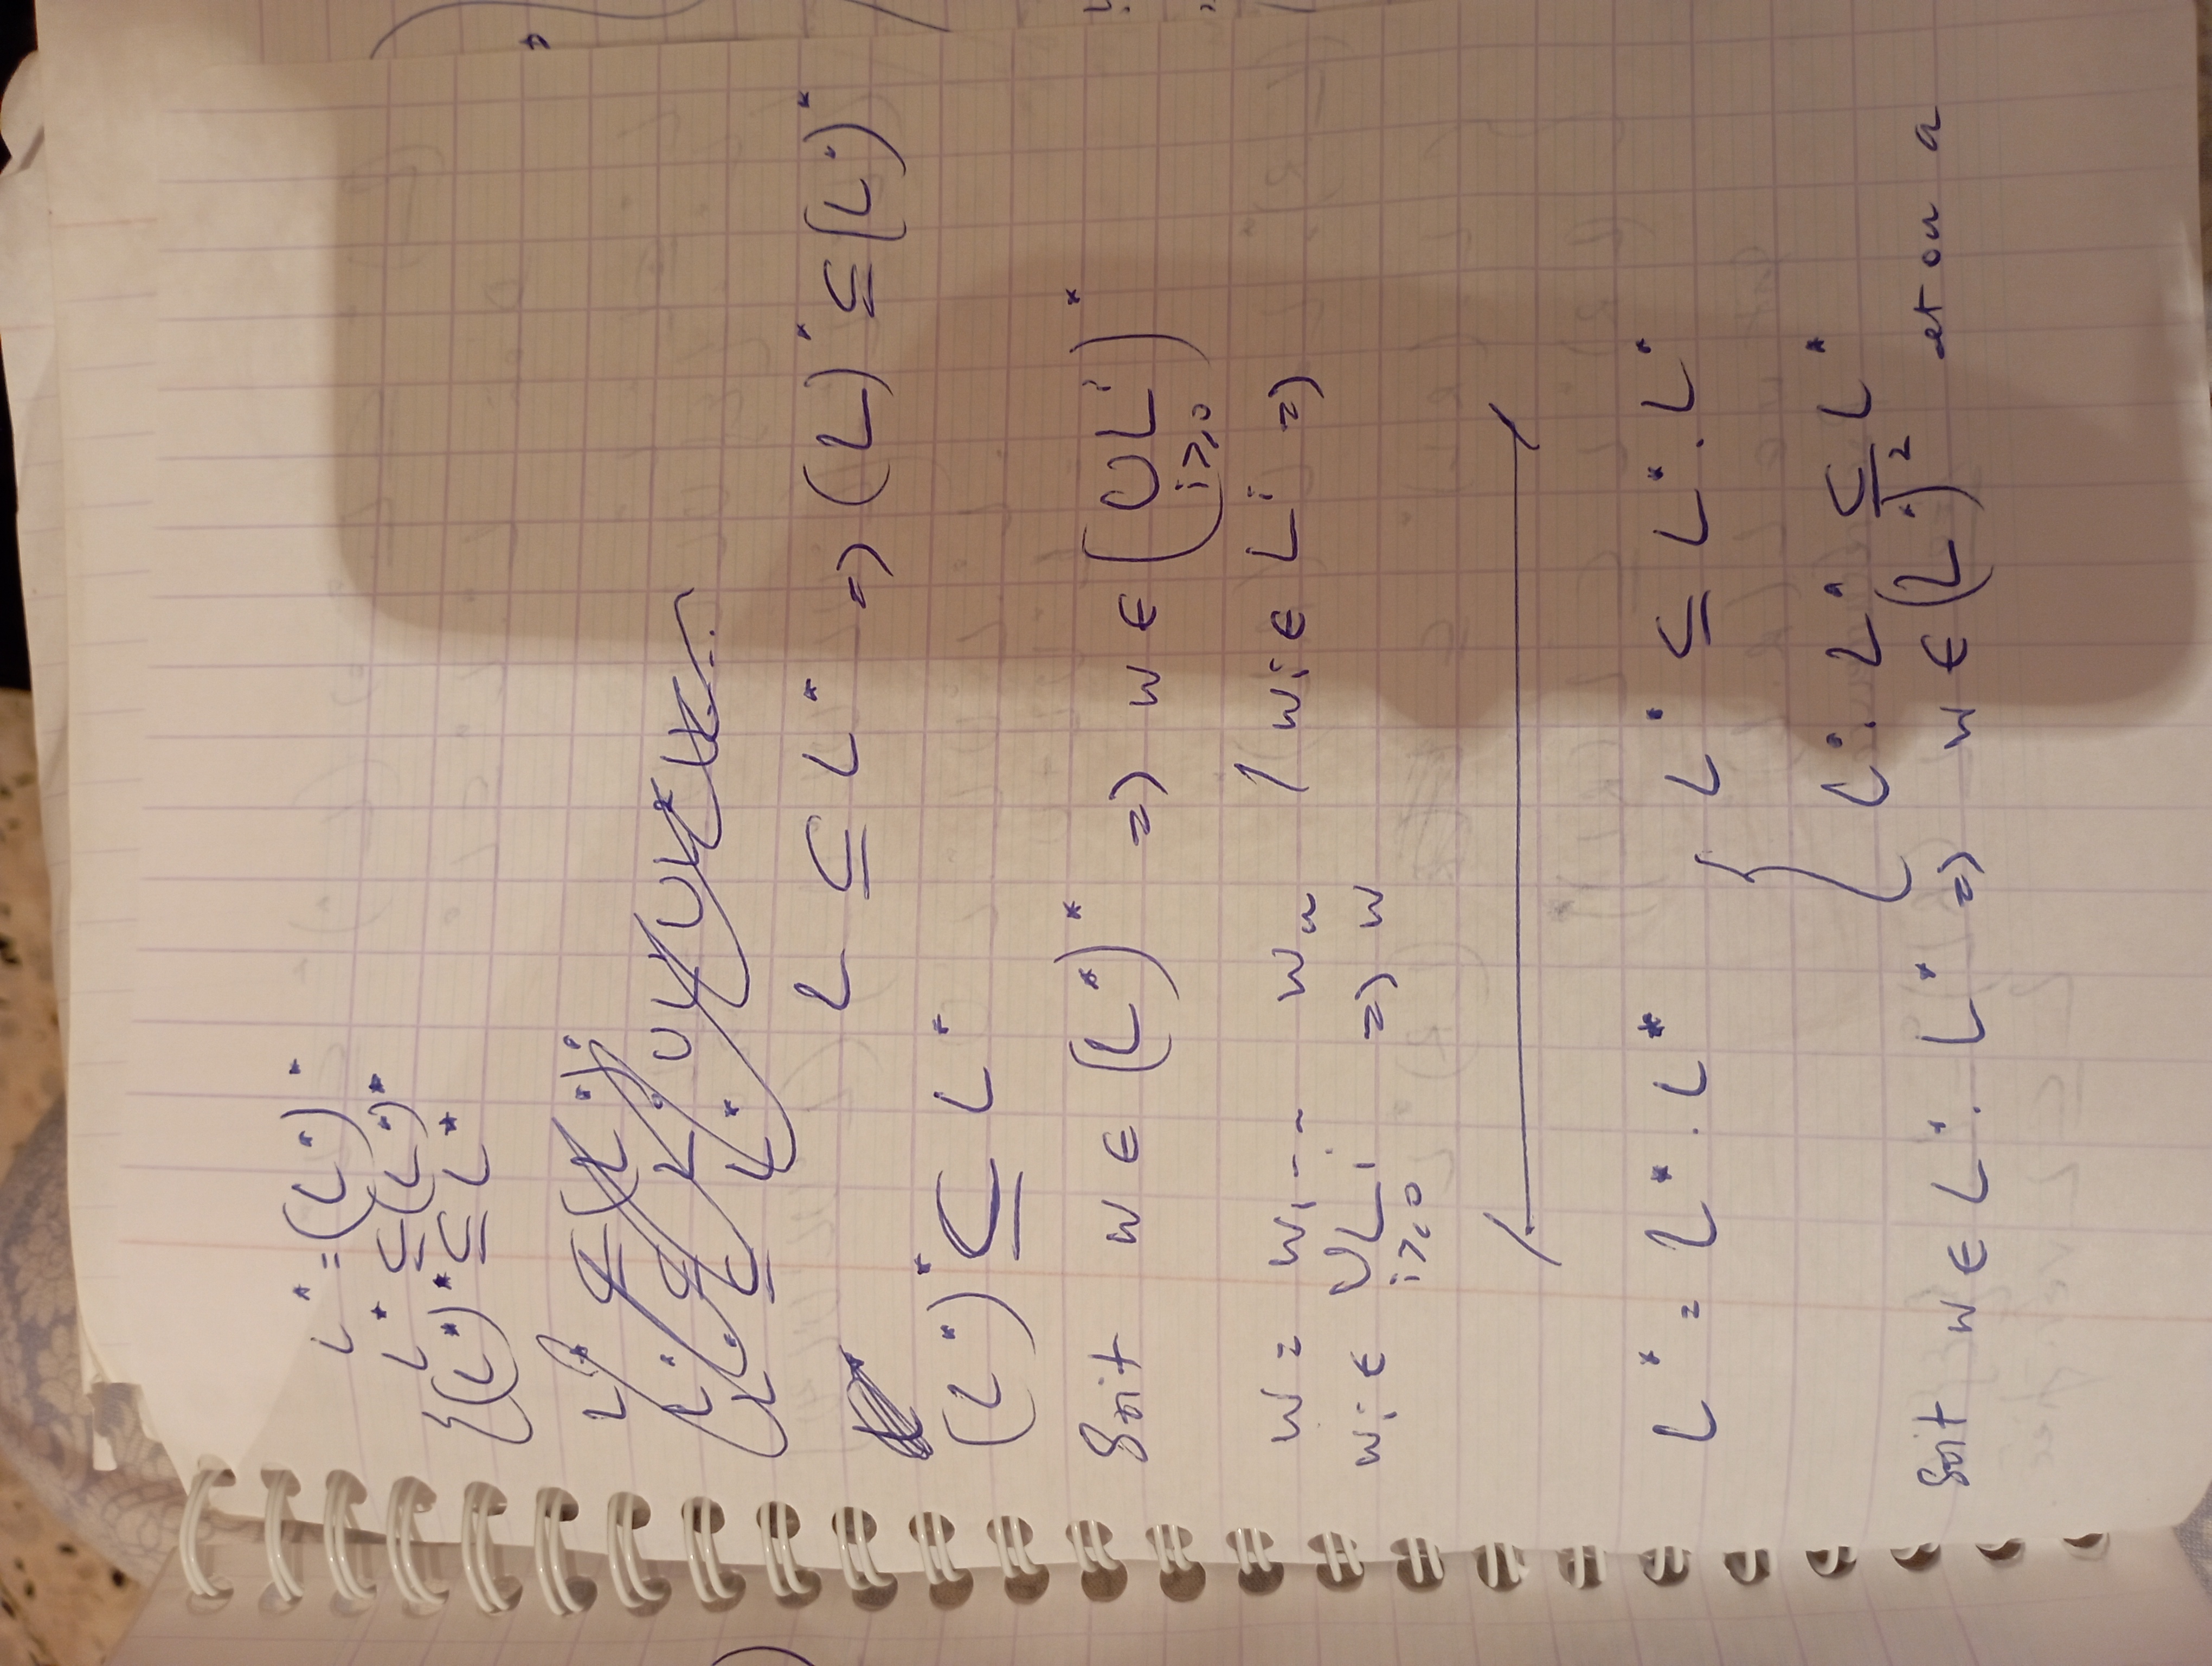 L* = (L*)*
{ L* ⊆ (L*)*
(L*)* ⊆ L*
L ⊆ L* => (L)* ⊆ (L*)*
(L*)* ⊆ L*
Soit w ∈ (L*)* => w ∈ (∪ Lⁱ)*
i≥0
w = w₁ - - - wₙ / wᵢ ∈ Lⁱ =>
wᵢ ∈ ∪ Lⁱ => w
i≥0
L* = L* . L* { L* ⊆ L* . L*
L* . L* ⊆ L*
Soit w ∈ L* . L* => w ∈ (L*)² et on a